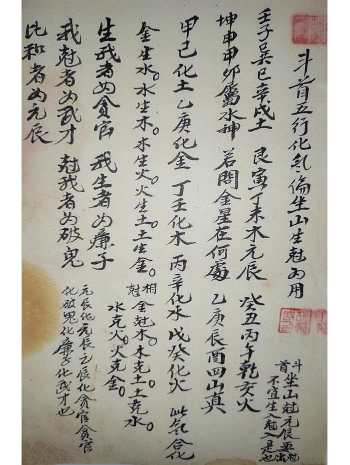 斗首五行化气倫坐山生尅为用
壬子巽巳辛戌土 艮寅丁未木元辰 癸丑丙午乾亥火
坤申甲卯屬水神 若問金星在何處 乙庚辰酉四山真
甲己化土 乙庚化金 丁壬化木 丙辛化水 戊癸化火 此氣合化
金生水。水生木。木生火。火生土。土生金。
相尅 金尅木。木克土。土克水。
水克火。火克金。
生我者为貪官 我生者为廉子
我尅者为武才 尅我者为破鬼
比和者为元辰
斗首
坐山尅元辰
不宜生
元辰化元辰元辰化貪官貪官
化破鬼化廉子化武才也